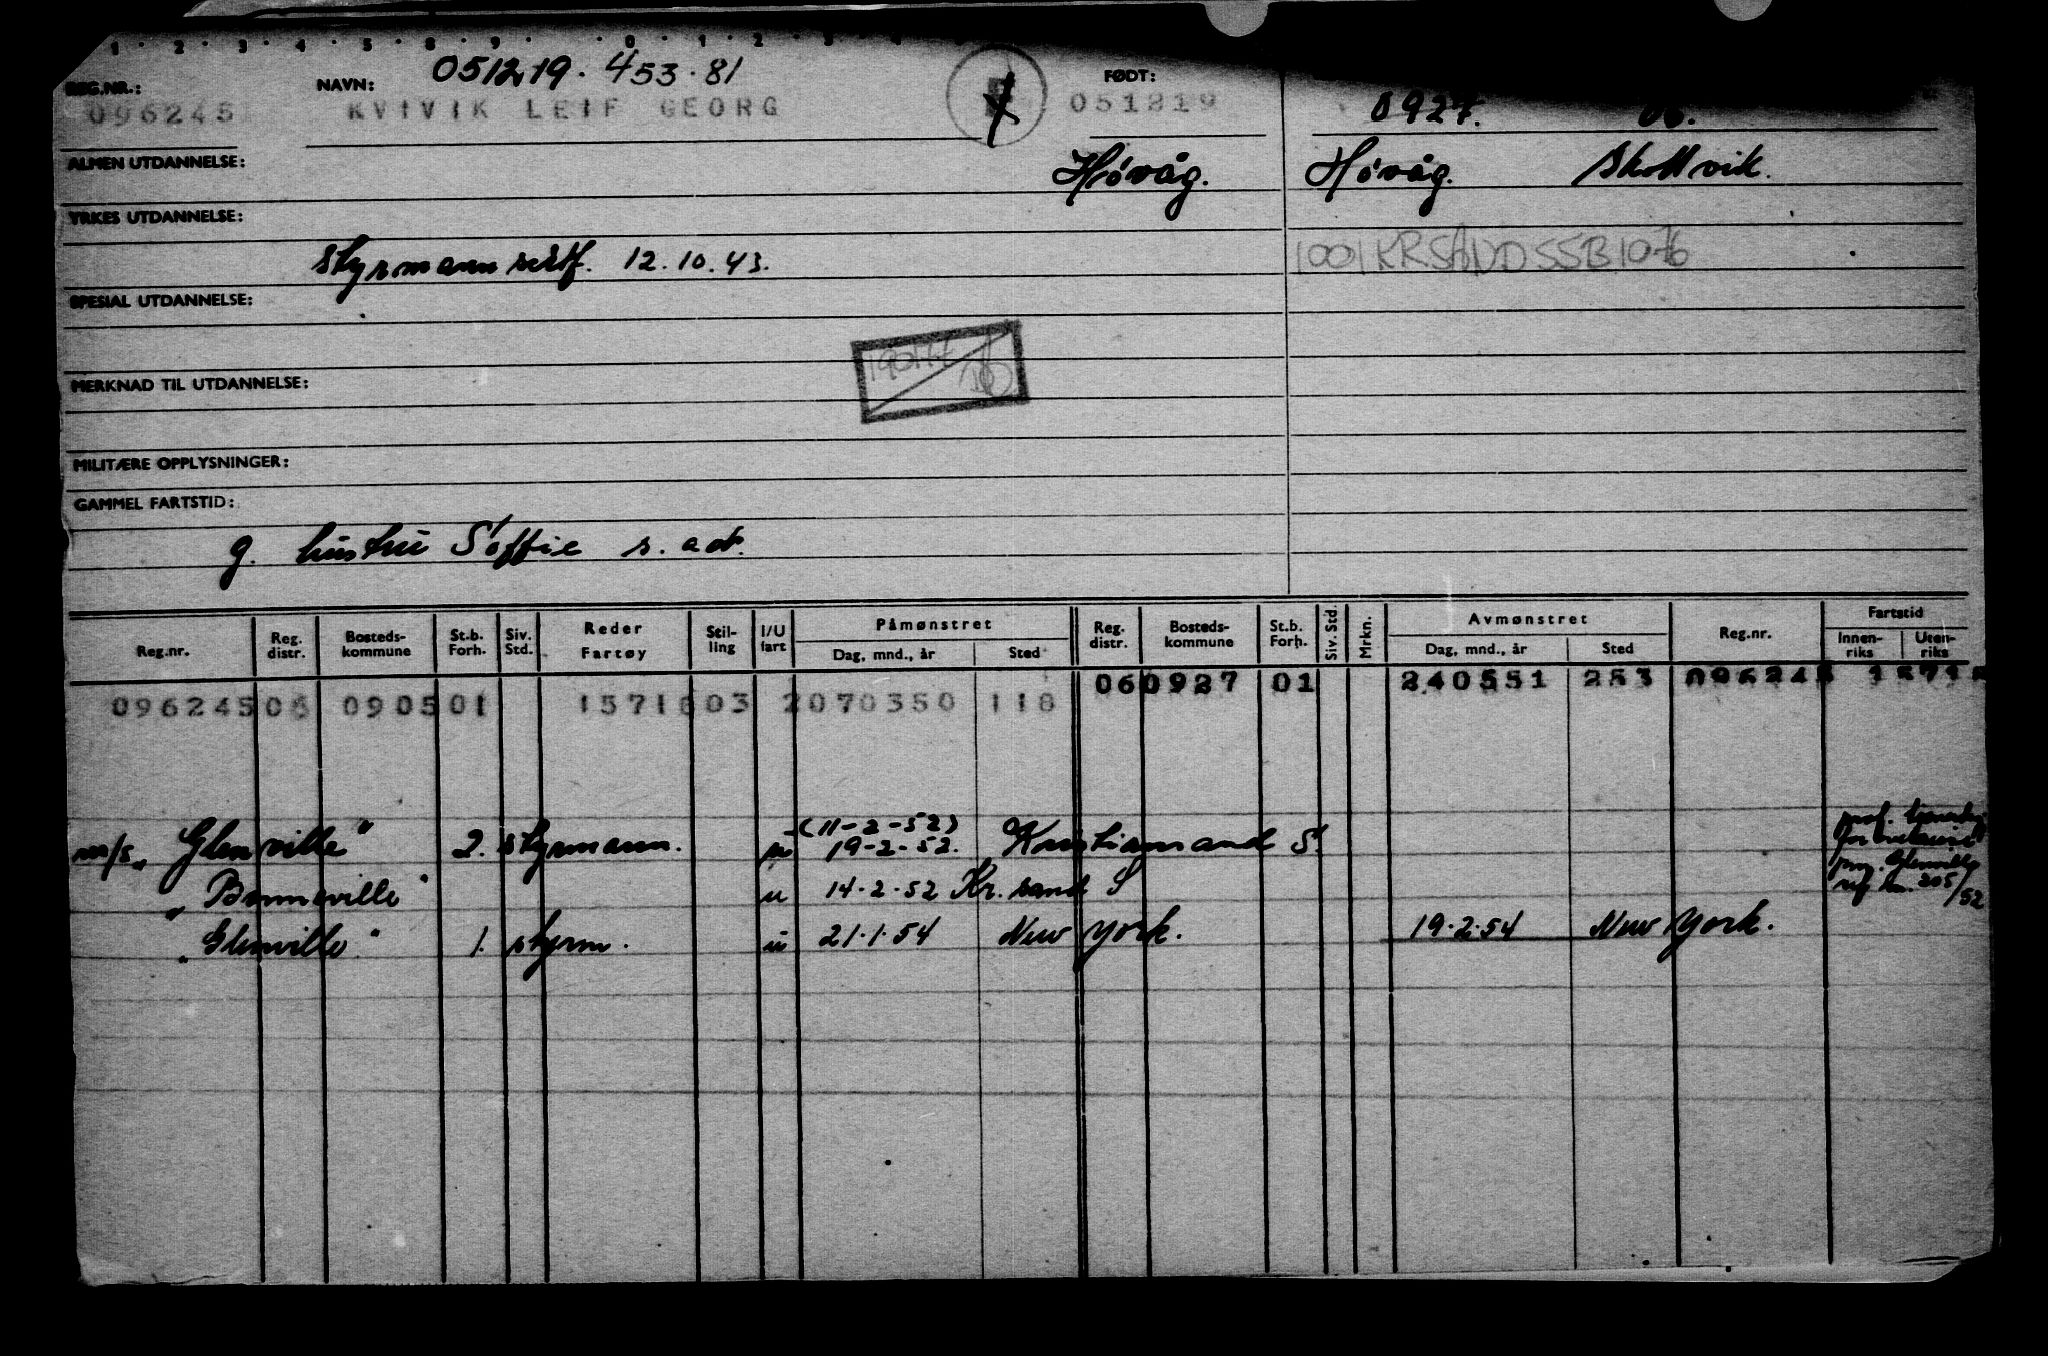 1 · 2 · 3 · 4 · 5 · 8 · 9 · · 0 · 1 · 2
REG.NR.: NAVN: 051219. 453.81 FØDT:
096245 KVIVIK LEIF GEORG 051219 0927. 06.
ALMEN UTDANNELSE: Høvåg. Høvåg. Skottvik.
YRKES UTDANNELSE:
styrmannsertf. 12.10.43. 1001 KRSAND SSB 1076
SPESIAL UTDANNELSE:
MERKNAD TIL UTDANNELSE:
MILITÆRE OPPLYSNINGER:
GAMMEL FARTSTID:
g. hustru Soffie s. adr.
Reg.nr. Reg. distr. Bosteds-kommune St.b. Forh. Siv. Std. Reder Fartøy Stil-ling I/U fart Påmønstret Dag, mnd., år Sted Reg. distr. Bosteds-kommune St.b. Forh. Siv. Std. Mrkn. Avmønstret Dag, mnd., år Sted Reg.nr. Fartstid Innen-riks Uten-riks
096245 06 0905 01 1571603 2070350 118 060927 01 240551 253 096245 1571
(11-2-52)
m/s "Glenville" 2. styrmann. u 19-2-52. Kristiansand S.
" Bonneville " u 14.2.52 Kr. sand S
" Glenville " 1. styrm. u 21.1.54 New York. 19.2.54 New York.
reg. nr. 205/52